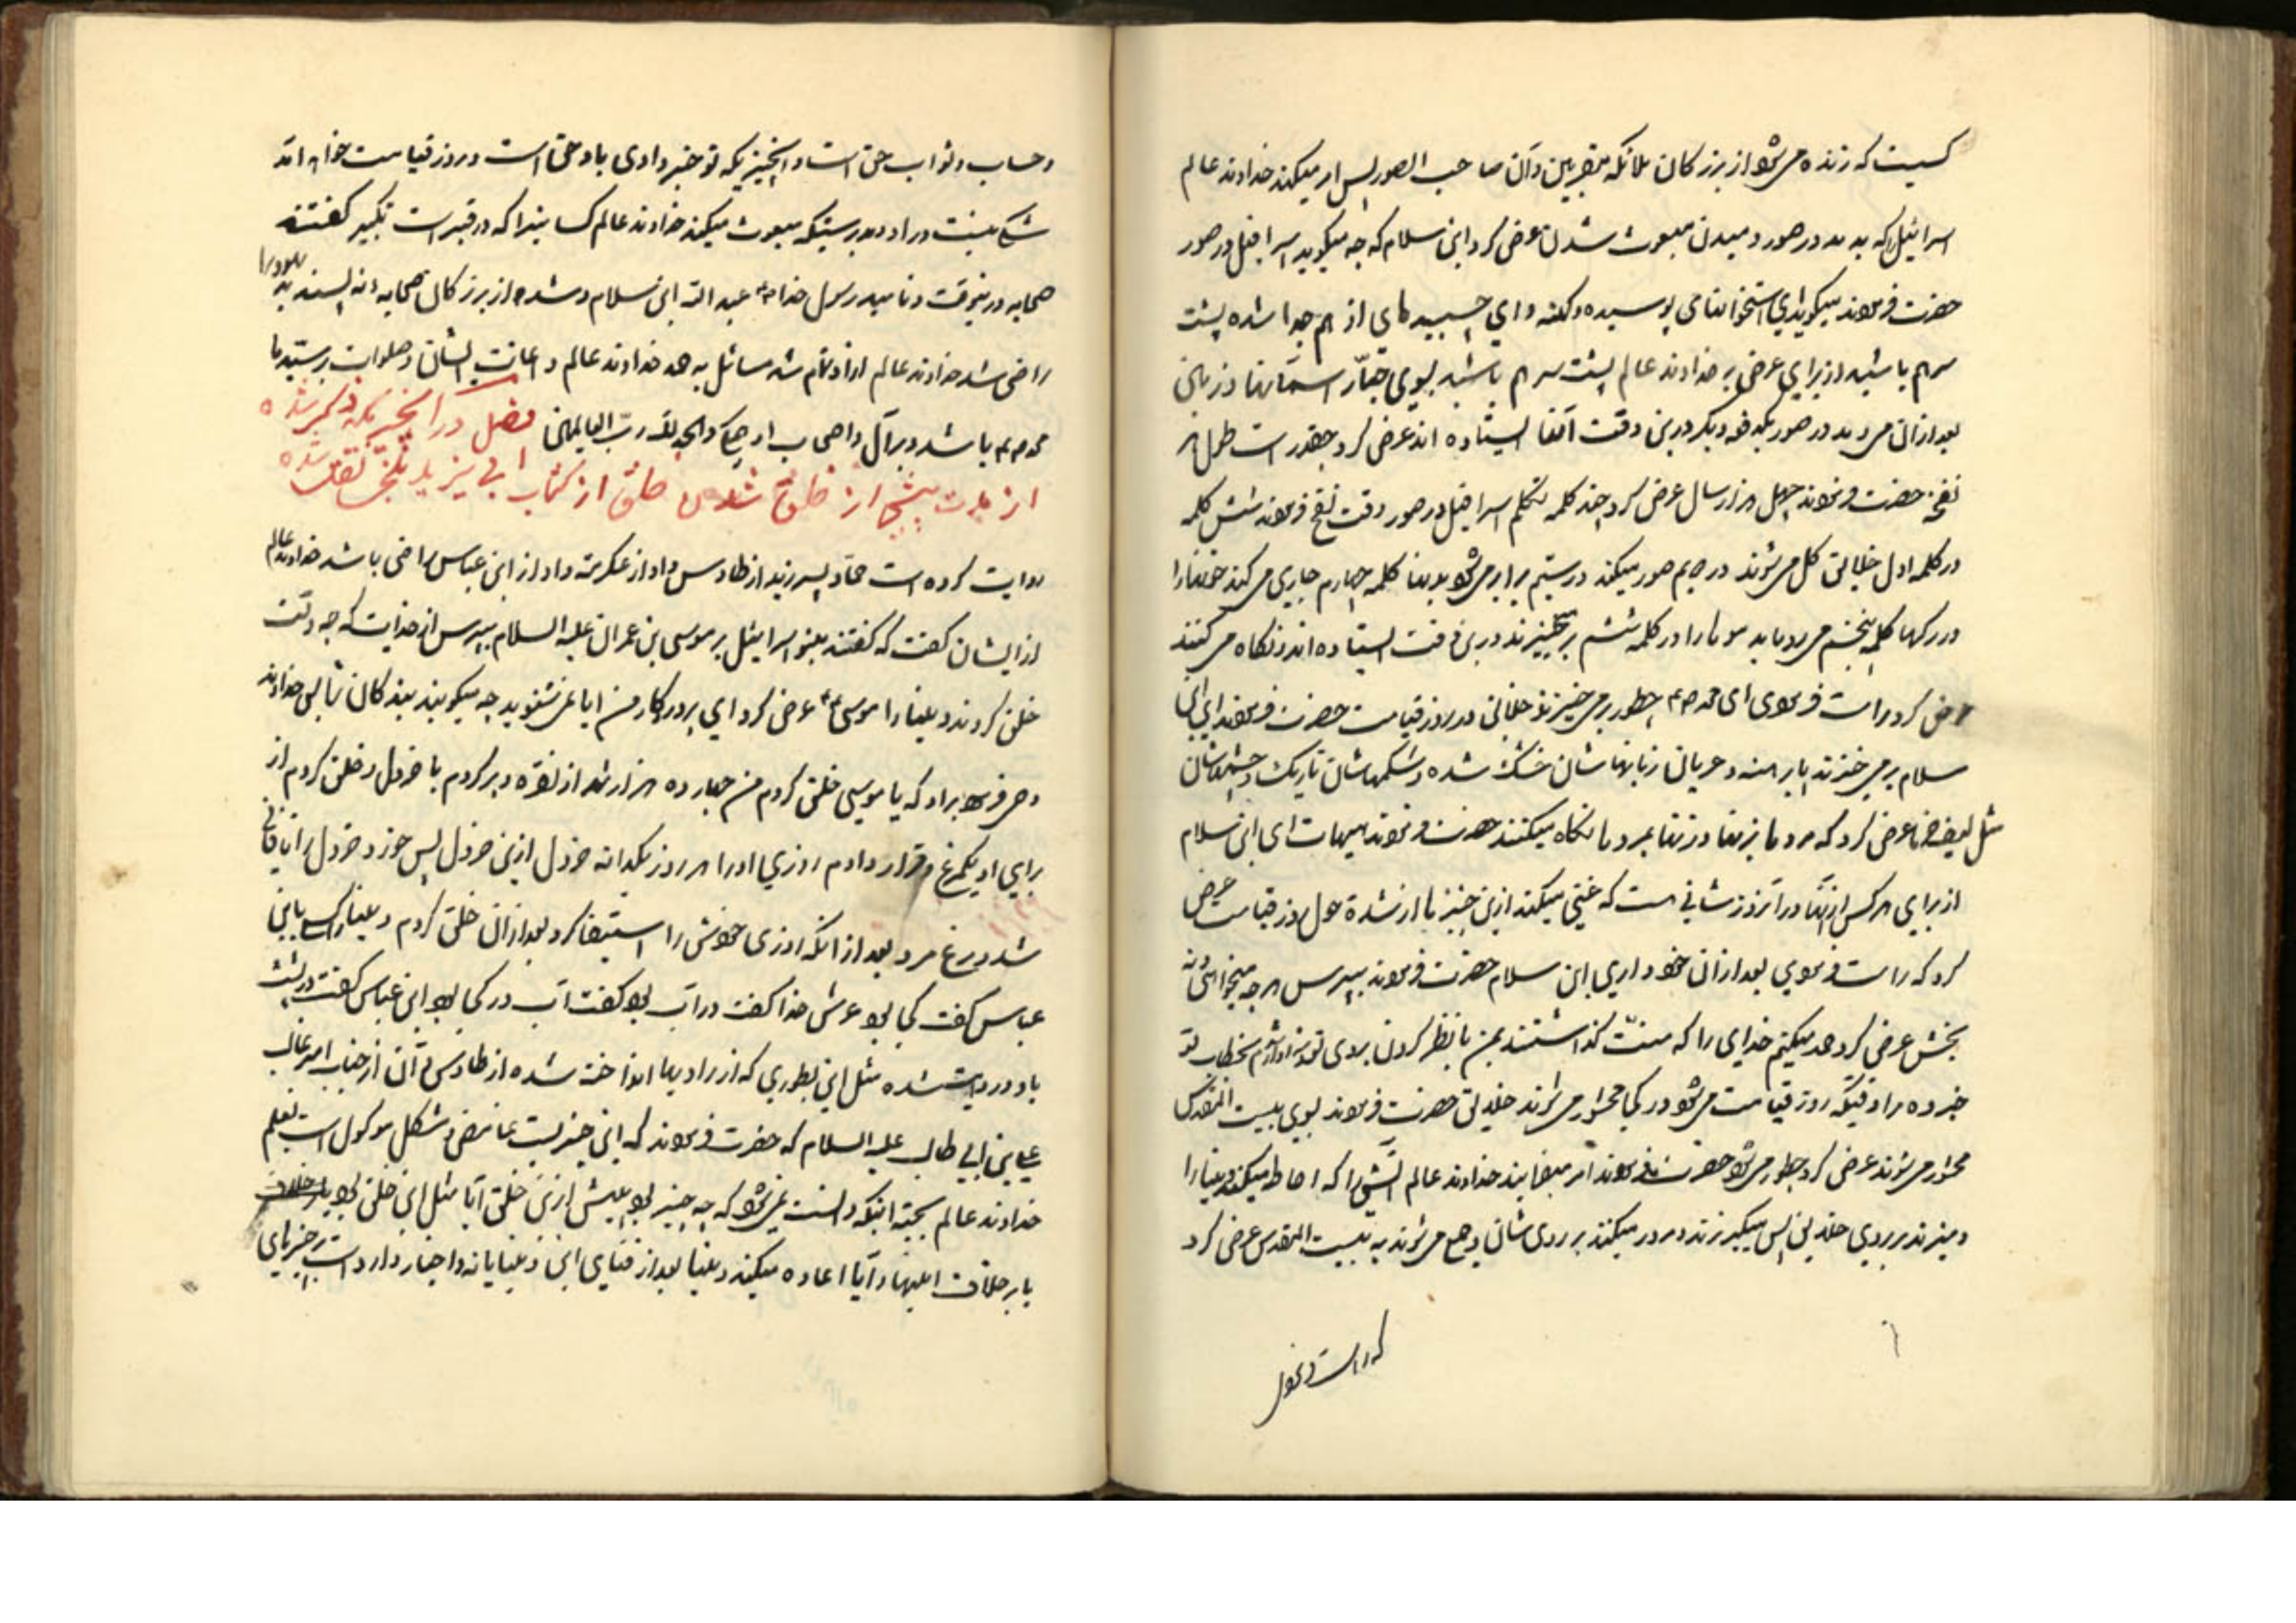 کسیت که زنده می‌شود از بزرکان ملائکه مقربین و آن صاحب الصور پس امر میکند خداوند عالم
اسرافیل را که بدمد در صور دمیدن مبعوث شدن عرض کرد ابن سلام که چه میکوید اسرافیل در صور
حضرت فرمودند میکوید ای استخوانهای پوسیده و کهنه و ای چسبیدهای از هم جدا شده پشت
سر هم باشید از برای عرض بر خداوند عالم پشت سر هم باشید بسوی جبّار اسمانها و زمین
بعد از آن میدمد در صور یکدفعه دیکر در این وقت آنها ایستاده اند عرض کرد چقدر است طول هر
نفخه حضرت فرمودند چهل هزار سال عرض کرد چند کلمه تکلم اسرافیل در صور وقت نفخ فرمودند شش کلمه
در کلمه اول خلایق کل می‌شوند در دویم صور میکند در سیم برابر می‌شود بدنها کلمه چهارم جاری می‌کند خونها را
در رکها کلمه پنجم می‌رویاند موها را در کلمه ششم بر می‌خیزند در این وقت ایستاده اند و نکاه می‌کنند
عرض کرد راست فرمودی ای محمد ص چطور بر می‌خیزند خلایق در روز قیامت حضرت فرمودند ای ابن
سلام بر می‌خیزند پا برهنه و عریان زبانهاشان خشک شده و شکمهاشان تاریک و چشمهاشان
عرض کرد که مردها بزنها و زنها بمردها نکاه میکنند حضرت فرمودند هیهات ای ابن سلام
از برای هر کس از آنها در آنروز شانی هست که غنی میکند از این چیزها از شدة هول روز قیامت عرض
کرد که راست فرمودی بعد از آن خود داری ابن سلام حضرت فرمودند بپرس هر چه میخواهی و نه
بخش عرض کرد حمد میکنم خدای را که منّت کذاشتند بمن با نظر کردن بروی تو و سزاوارم بخطاب تو
خبر ده مرا وقتیکه روز قیامت می‌شود در کجا محشور می‌شوند خلایق حضرت فرمودند بسوی بیت المقدس
محشور می‌شوند عرض کرد چطور می‌شود حضرت فرمودند امر میفرمایند خداوند عالم آتشی را که احاطه میکند دنیا را
و میزند بر روی خلایق پس میکریزند و مرور میکنند بر روی شان و جمع می‌شوند به بیت المقدس عرض کرد
که راست فرمودی
و حساب و ثواب حق است و انچیزیکه تو خبر دادی باو حق است و روز قیامت خواهد آمد
شک نیست در او و بدرستیکه مبعوث میکند خداوند عالم کسانیرا که در قبر است تکبیر کفتند
صحابه در نیوقت و نامید رسول خدا ص عبد الله ابن سلام و شد از بزرکان صحابه
راضی شد خداوند عالم از او تمام شد مسائل به حمد خداوند عالم و اعانت ایشان و صلوات بر سید ما
محمد ص باشد و بر آل و اصحاب او جمیعا و الحمد لله رب العالمین فصل در انچیزیکه ذکر شده
از مدت پیش از خلق شدن خلق از کتاب ابی یزید بلخی نقل شده
روایت کرده است حماد پسر زید از طاوس و او از عکرمه و او از ابن عباس راضی باشد خداوند عالم
از ایشان کفت که کفتند بنو اسرائیل بر موسی بن عمران علیه السلام بپرس از خدایت که چه وقت
خلق کردند دنیا را موسی ع عرض کرد ای پروردکار من ایا نمی‌شنوید چه میکویند بندکان تو پس خداوند
وحی فرمود براو که یا موسی خلق کردم من چهارده هزار شهر از نقره و پر کردم با خردل و خلق کردم از
برای او یکمرغ و قرار دادم روزی او را هر روز یکدانه خردل از این خردل پس خورد خردل را تا فانی
شد و مرغ مرد بعد از انکه روزی خودش را استیفا کرد بعد از آن خلق کردم دنیا را کسی بابن
عباس کفت کجا بود عرش خدا کفت در آب بود کفت آب در کجا بود ابن عباس کفت در پشت
باد و روایت شده مثل این بطوری که از راویها انداخته شده از طاوس و آن از جناب امیر غالب
علی بن ابی طالب علیه السلام که حضرت فرمودند که این خبریست غامض و مشکل موکول است بعلم
خداوند عالم بجهة اینکه دانسته نمی‌شود که چه چیز بود پیش از این خلق آیا مثل این خلق بود یا بر خلاف
یا بر خلاف اینها و آیا اعاده میکند دنیا بعد از فنای این دنیا یا نه و اخبار وارد است بر چیزهای